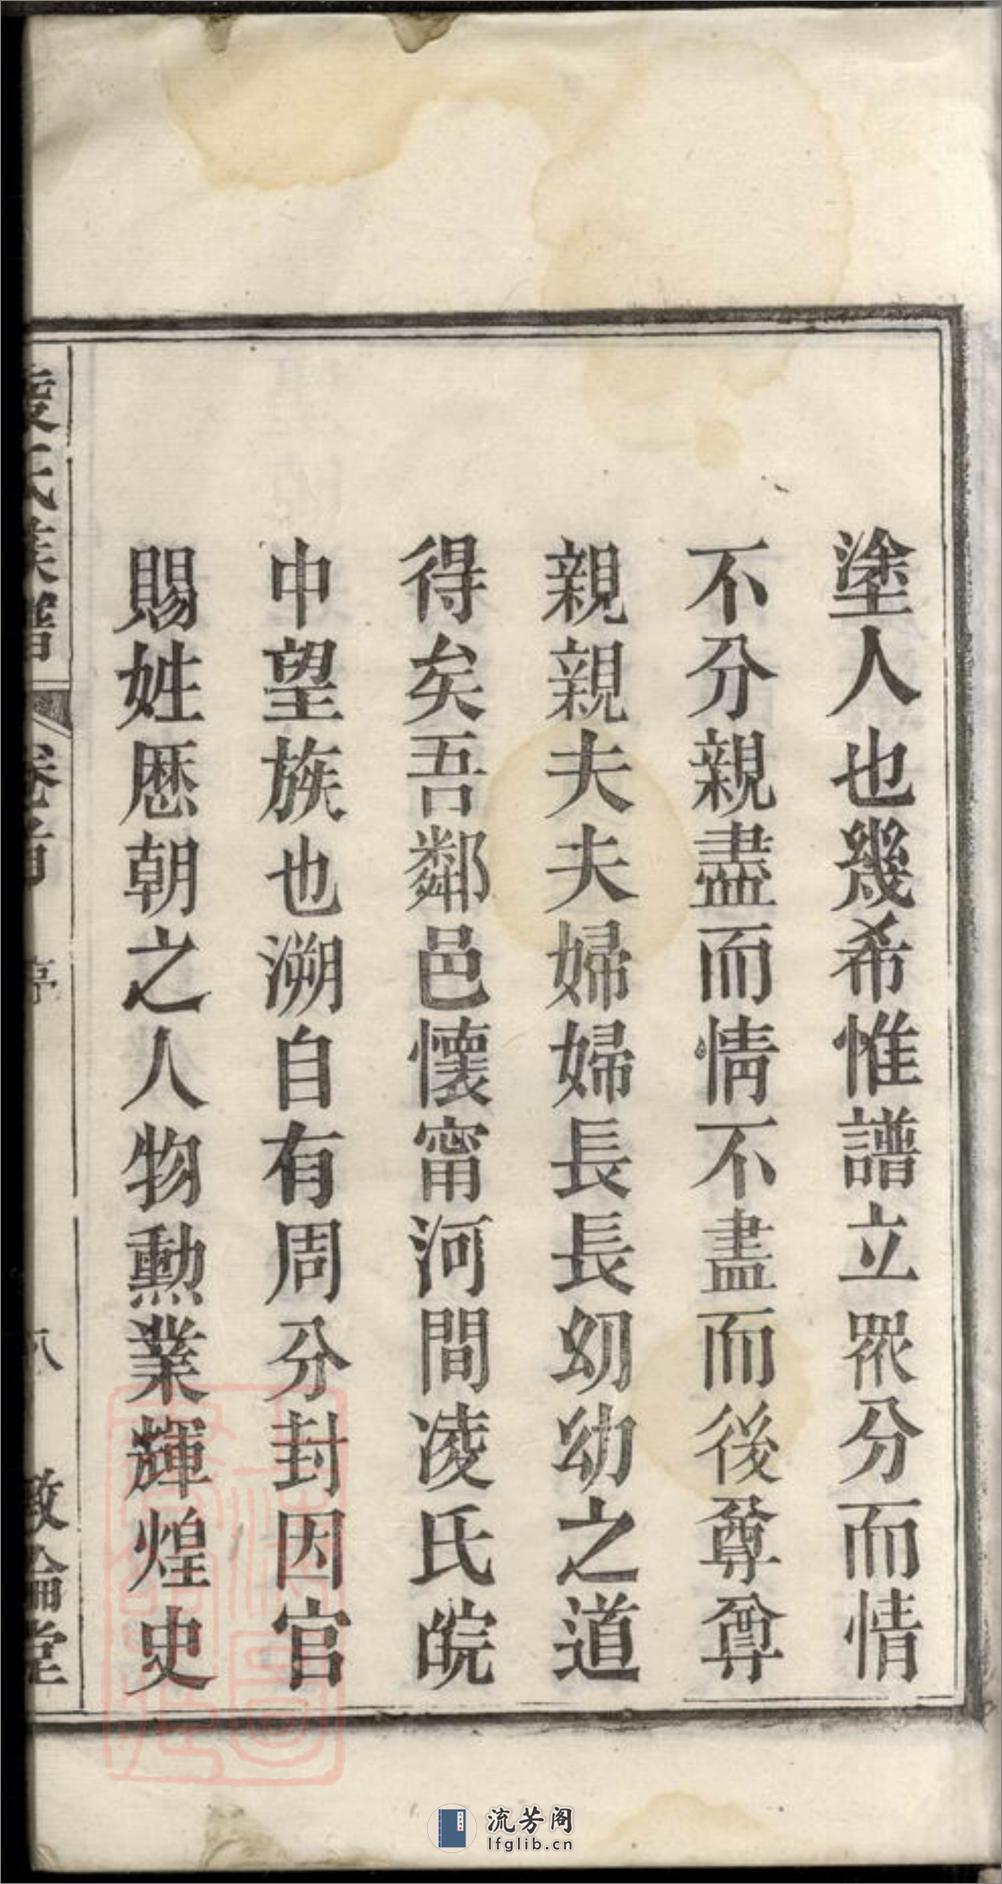 塗人也幾希惟譜立眾分而情
不分親盡而情不盡而後尊尊
親親夫夫婦婦長長幼幼之道
得矣吾鄰邑懷甯河間凌氏皖
中望族也溯自有周分封因官
賜姓歷朝之人物勳業輝煌史
凌氏族譜
卷首
序
八
敦倫堂
流芳阁
lfglib.cn